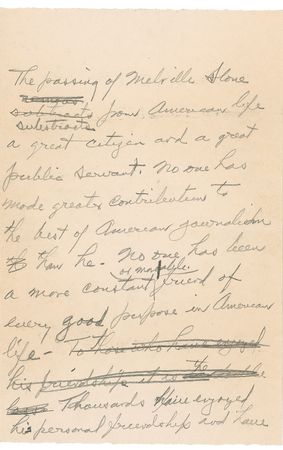 The passing of Melville Stone
removes
subtracts from American life
substracts
a great citizen and a great
public servant. No one has
made greater contribution to
the best of American journalism
th than he - No one has been
or manly
a more constant friend of
every good purpose in American
life - To those who have enjoyed
his friendship it is the
Thousands have enjoyed
his personal friendship and have